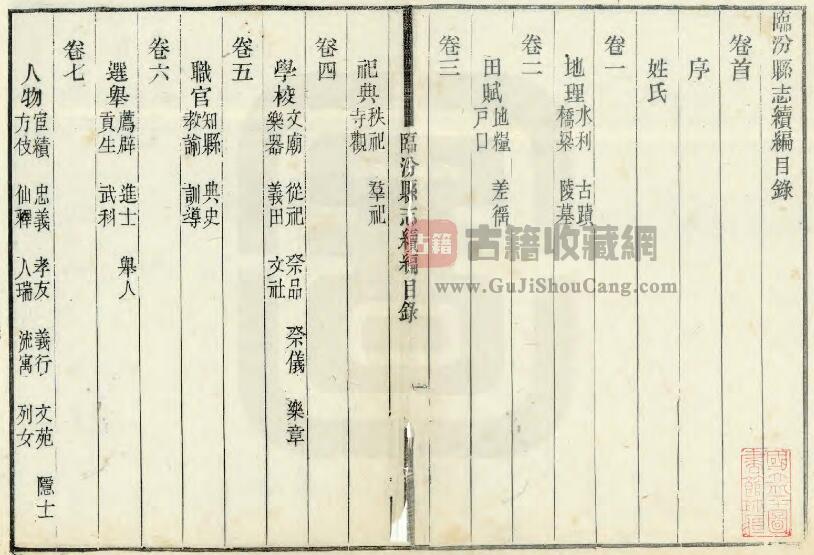 臨汾縣志續編目錄
卷首
序
姓氏
卷一
地理 水利 古蹟
橋梁 陵墓
卷二
田賦 地糧 差徭
戶口
卷三
祀典 秩祀 羣祀
寺觀
卷四
學校 文廟 從祀 祭品 祭儀 樂章
樂器 義田 文社
卷五
職官 知縣 典史
教諭 訓導
卷六
選舉 薦辟 進士 舉人
貢生 武科
卷七
人物 宦績 忠義 孝友 義行 文苑 隱士
方伎 仙釋 人瑞 流寓 列女
臨汾縣志續編 目錄 一
古籍
古籍收藏網
www.GuJiShouCang.com